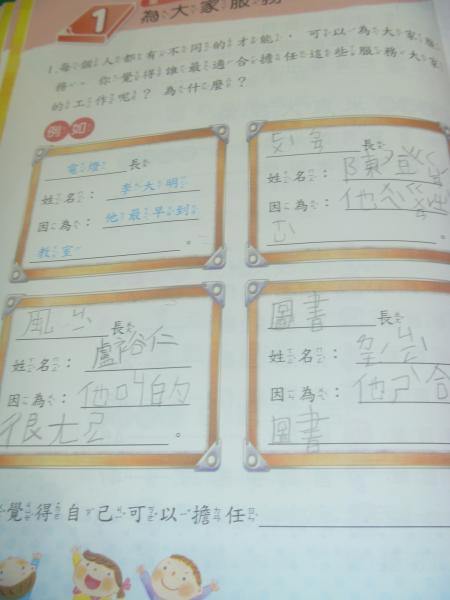 1 為大家服務
1.每個人都有不同的才能,可以為大家服
務。你覺得誰最適合擔任這些服務大家
的工作呢?為什麼?
例如
電燈長
姓名:李大明
因為:他最早到
教室。
長
姓名:陳登
因為:他
。
風 長
姓名:盧裕仁
因為:他叫的
很大ㄕㄥ。
圖書長
姓名:
因為:他ㄕ合
圖書
覺得自己可以擔任